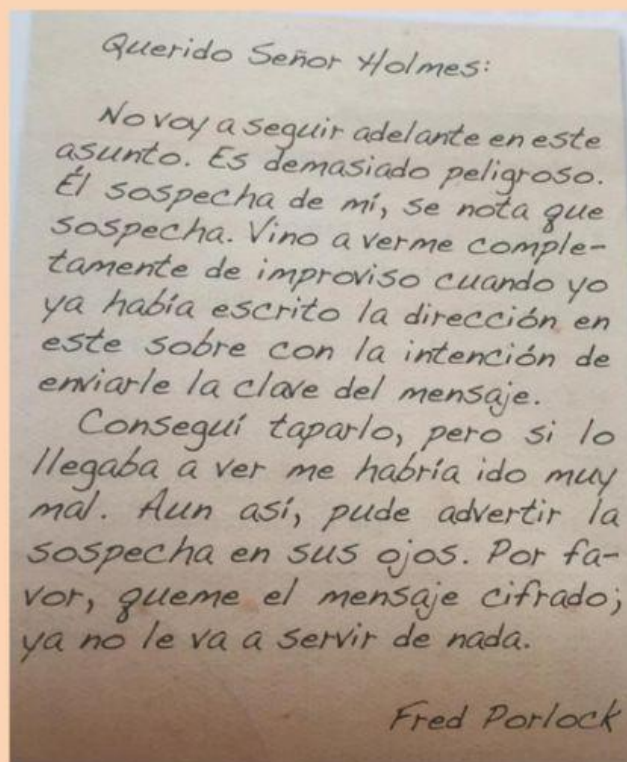 Querido Señor Holmes:
No voy a seguir adelante en este
asunto. Es demasiado peligroso.
Él sospecha de mí, se nota que
sospecha. Vino a verme comple-
tamente de improviso cuando yo
ya había escrito la dirección en
este sobre con la intención de
enviarle la clave del mensaje.
Conseguí taparlo, pero si lo
llegaba a ver me habría ido muy
mal. Aun así, pude advertir la
sospecha en sus ojos. Por fa-
vor, queme el mensaje cifrado;
ya no le va a servir de nada.
Fred Porlock